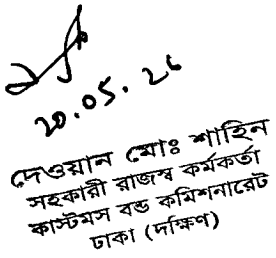 20.05.26
দেওয়ান মোঃ শাহিন
সহকারী রাজস্ব কর্মকর্তা
কাস্টমস বন্ড কমিশনারেট
ঢাকা (দক্ষিণ)